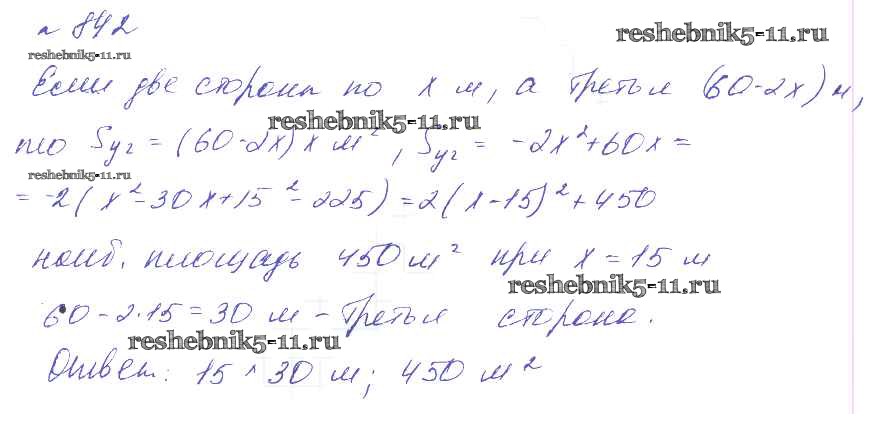 № 842
reshebnik5-11.ru
reshebnik5-11.ru
Если две стороны по x м, а третья (60-2x) м,
reshebnik5-11.ru
то Sуч = (60-2x) x м², Sуч = -2x²+60x =
reshebnik5-11.ru
= -2(x²-30x+15²-225) = 2(x-15)²+450
наиб. площадь 450 м² при x = 15 м
reshebnik5-11.ru
60-2·15=30 м - третья сторона.
reshebnik5-11.ru
Ответ: 15 и 30 м; 450 м²